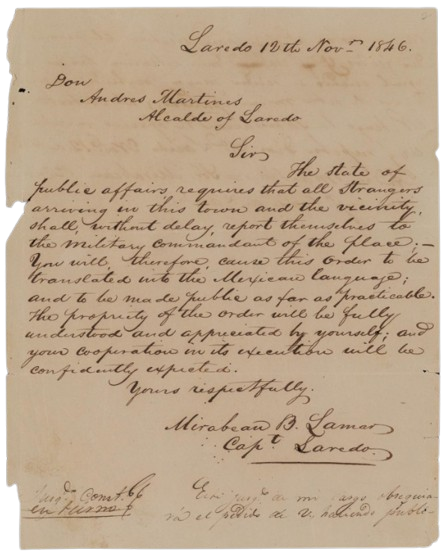 Laredo 12th Novr 1846.
Don
Andres Martines
Alcalde of Laredo
Sir
The state of
public affairs, requires that all Strangers
arriving in this town and the vicinity,
shall, without delay, report themselves to
the Military Commandant of the place. —
You will, therefore, cause this order to be
translated into the Mexican language;
and to be made public as far as practicable.
The propriety of the order will be fully
understood and appreciated by yourself; and
your cooperation in its execution will be
confidently expected.
Yours respectfully.
Mirabeau B. Lamar
Capt Laredo.
Const.
en turno
Este de mi cargo
ra el pedido de V. haciendo